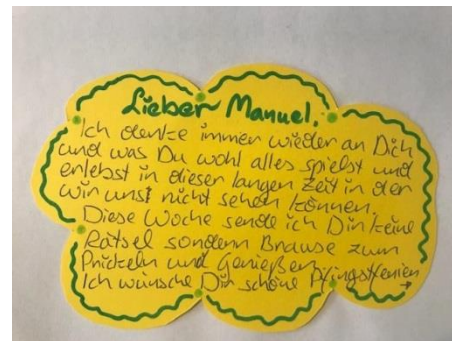 Lieber Manuel,
Ich denke immer wieder an Dich
und was Du wohl alles spielst und
erlebst in dieser langen Zeit in der
wir uns nicht sehen können.
Diese Woche sende ich Dir keine
Rätsel sondern Brause zum
Prickeln und Genießen
Ich wünsche Dir schöne Pfingstferien
→